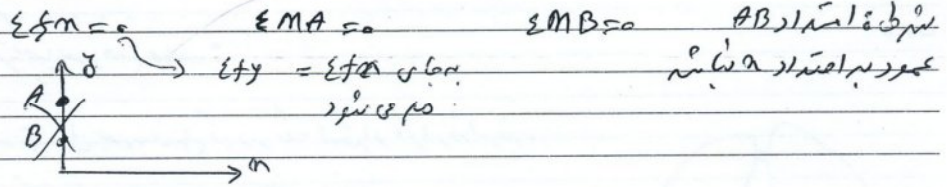 Σfx = 0    ΣMA = 0    ΣMB = 0    شرط: امتداد AB
عمود بر امتداد x نباشد
Σfy = Σfx بجای
می شود
y
A
B
x